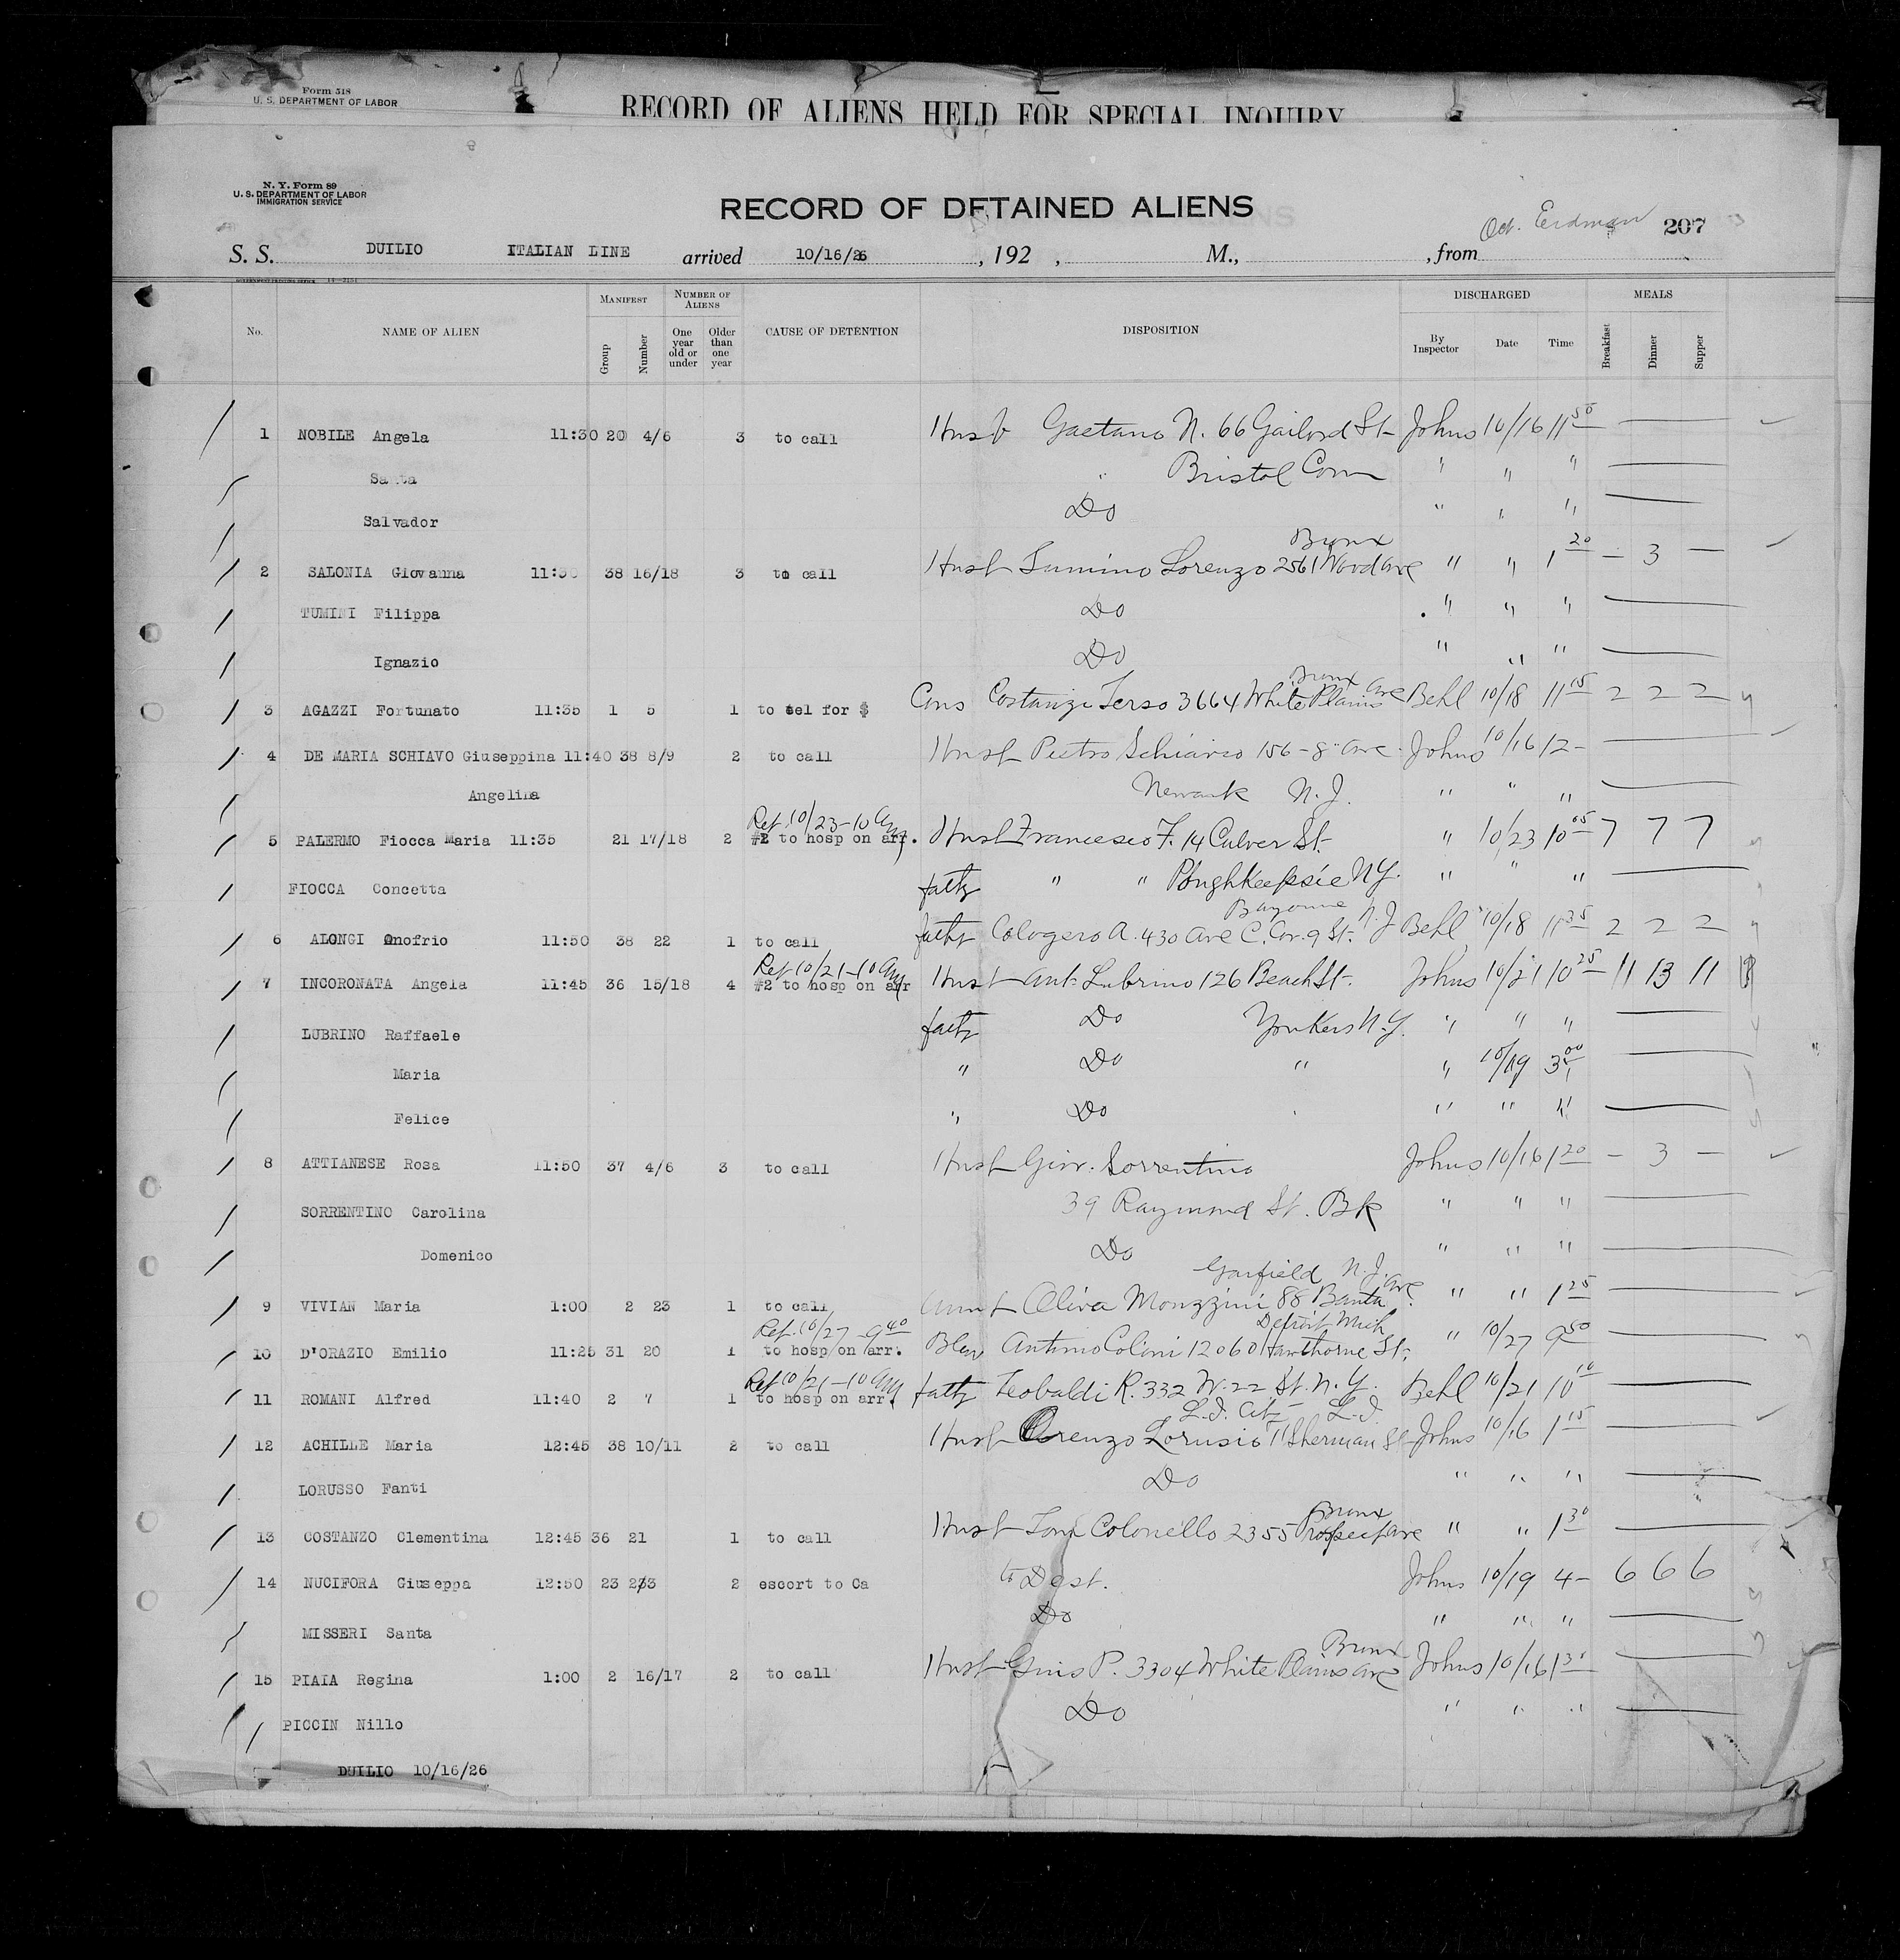 Form 518
U. S. DEPARTMENT OF LABOR
RECORD OF ALIENS HELD FOR SPECIAL INQUIRY
N. Y. Form 89
U. S. DEPARTMENT OF LABOR
IMMIGRATION SERVICE
RECORD OF DETAINED ALIENS
Erdman 207
S. S. DUILIO ITALIAN LINE arrived 10/16/26 , 192 , M., , from
No. NAME OF ALIEN MANIFEST Group Number NUMBER OF ALIENS One year old or under Older than one year CAUSE OF DETENTION DISPOSITION DISCHARGED By Inspector Date Time MEALS Breakfast Dinner Supper
1 NOBILE Angela 11:30 20 4/6 3 to call Husb Gaetano N. 66 Gailord St Johns 10/16 11 50
Bristol Conn " " "
Salvador Do " " "
Bronx
2 SALONIA Giovanna 11:30 38 16/18 3 to call Husb Lorenzo 2561 Wood Ave " " 1 20 — 3 —
TUMINI Filippa Do " " "
Ignazio Do " " "
Bronx
3 AGAZZI Fortunato 11:35 1 5 1 to tel for $ Cons Costanzi Terso 3664 White Plains Ave Behl 10/18 11 15 2 2 2
4 DE MARIA SCHIAVO Giuseppina 11:40 38 8/9 2 to call Husb Pietro Schiavo 156-8" Ave. Johns 10/16 12-
Angelina Newark N.J. " " "
Ret. 10/23-10 am
5 PALERMO Fiocca Maria 11:35 21 17/18 2 #2 to hosp on arr. Husb Francesco F. 14 Culver St. " 10/23 10 05 7 7 7
FIOCCA Concetta fath " " Poughkeepsie N.Y. " " "
Bayonne N.J
6 ALONGI Onofrio 11:50 38 22 1 to call fath Cologero A. 430 Ave C. Cor. 9 St. Behl 10/18 11 35 2 2 2
Ret 10/21-10 am
7 INCORONATA Angela 11:45 36 15/18 4 #2 to hosp on arr Husb Ant. Lubrino 126 Beach St. Johns 10/21 10 25 11 13 11
LUBRINO Raffaele fath Do Yonkers N.Y. " " "
Maria " Do " " 10/19 3 00
Felice " Do " " "
8 ATTIANESE Rosa 11:50 37 4/6 3 to call Husb Giov. Sorrentino Johns 10/16 1 20 — 3 —
SORRENTINO Carolina 39 Raymond St. Bk " " "
Domenico Do " " "
Garfield N.J.
9 VIVIAN Maria 1:00 2 23 1 to call Aunt Oliva Monzzini 88 Banta Ave. " " 1 25
Ret. 10/27-9 40 Detroit Mich
10 D'ORAZIO Emilio 11:25 31 20 1 to hosp on arr. Antimo Colini 12060 Hawthorne St. " 10/27 9 50
Ret 10/21-10 am
11 ROMANI Alfred 11:40 2 7 1 to hosp on arr. fath Teobaldi R. 332 W. 22 St. N.Y. Behl 10/21 10 10
L.I. City L.I.
12 ACHILLE Maria 12:45 38 10/11 2 to call Husb Lorenzo Lorusso 11 Sherman St Johns 10/16 1 15
LORUSSO Fanti Do " " "
Bronx
13 COSTANZO Clementina 12:45 36 21 1 to call Husb Colonello 2355 Prospect Ave " " 1 30
14 NUCIFORA Giuseppa 12:50 23 2/3 2 escort to Ca to Dest. Johns 10/19 4- 6 6 6
MISSERI Santa Do " " "
Bronx
15 PIAIA Regina 1:00 2 16/17 2 to call Husb P. 3304 White Plains Ave Johns 10/16 1 30
PICCIN Nillo Do " " "
DUILIO 10/16/26